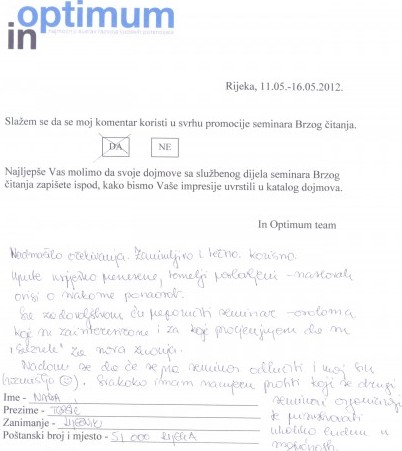 in optimum
Rijeka, 11.05.-16.05.2012.
Slažem se da se moj komentar koristi u svrhu promocije seminara Brzog čitanja.
DA NE
Najljepše Vas molimo da svoje dojmove sa službenog dijela seminara Brzog
čitanja zapišete ispod, kako bismo Vaše impresije uvrstili u katalog dojmova.
In Optimum team
Nadmašilo očekivanja. Zanimljivo i korisno.
Upute uspješno prenesene, temelji postavljeni - nastavak
ovisi o svakome ponaosob.
Sa zadovoljstvom ću preporučiti seminar - osobama
koje su zainteresirane i za koje procjenjujem da su
"sazrele" za nova znanja.
Nadam se da će se na seminar odlučiti i moj sin
Svakako imam namjeru pratiti koji se drugi
seminari organiziraju
Ime -
Prezime -
Zanimanje -
Poštanski broj i mjesto - 51000 RIJEKA